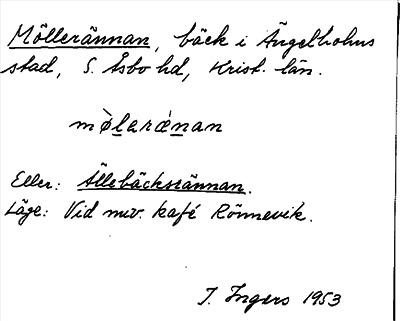 Möllerännan, bäck i Ängelholms
stad, S. Åsbo hd, Krist. län.
mø̀larǽnan
Eller: Ållebäcksrännan.
Läge: Vid nuv. kafé Rönnevik.
I. Ingers 1953